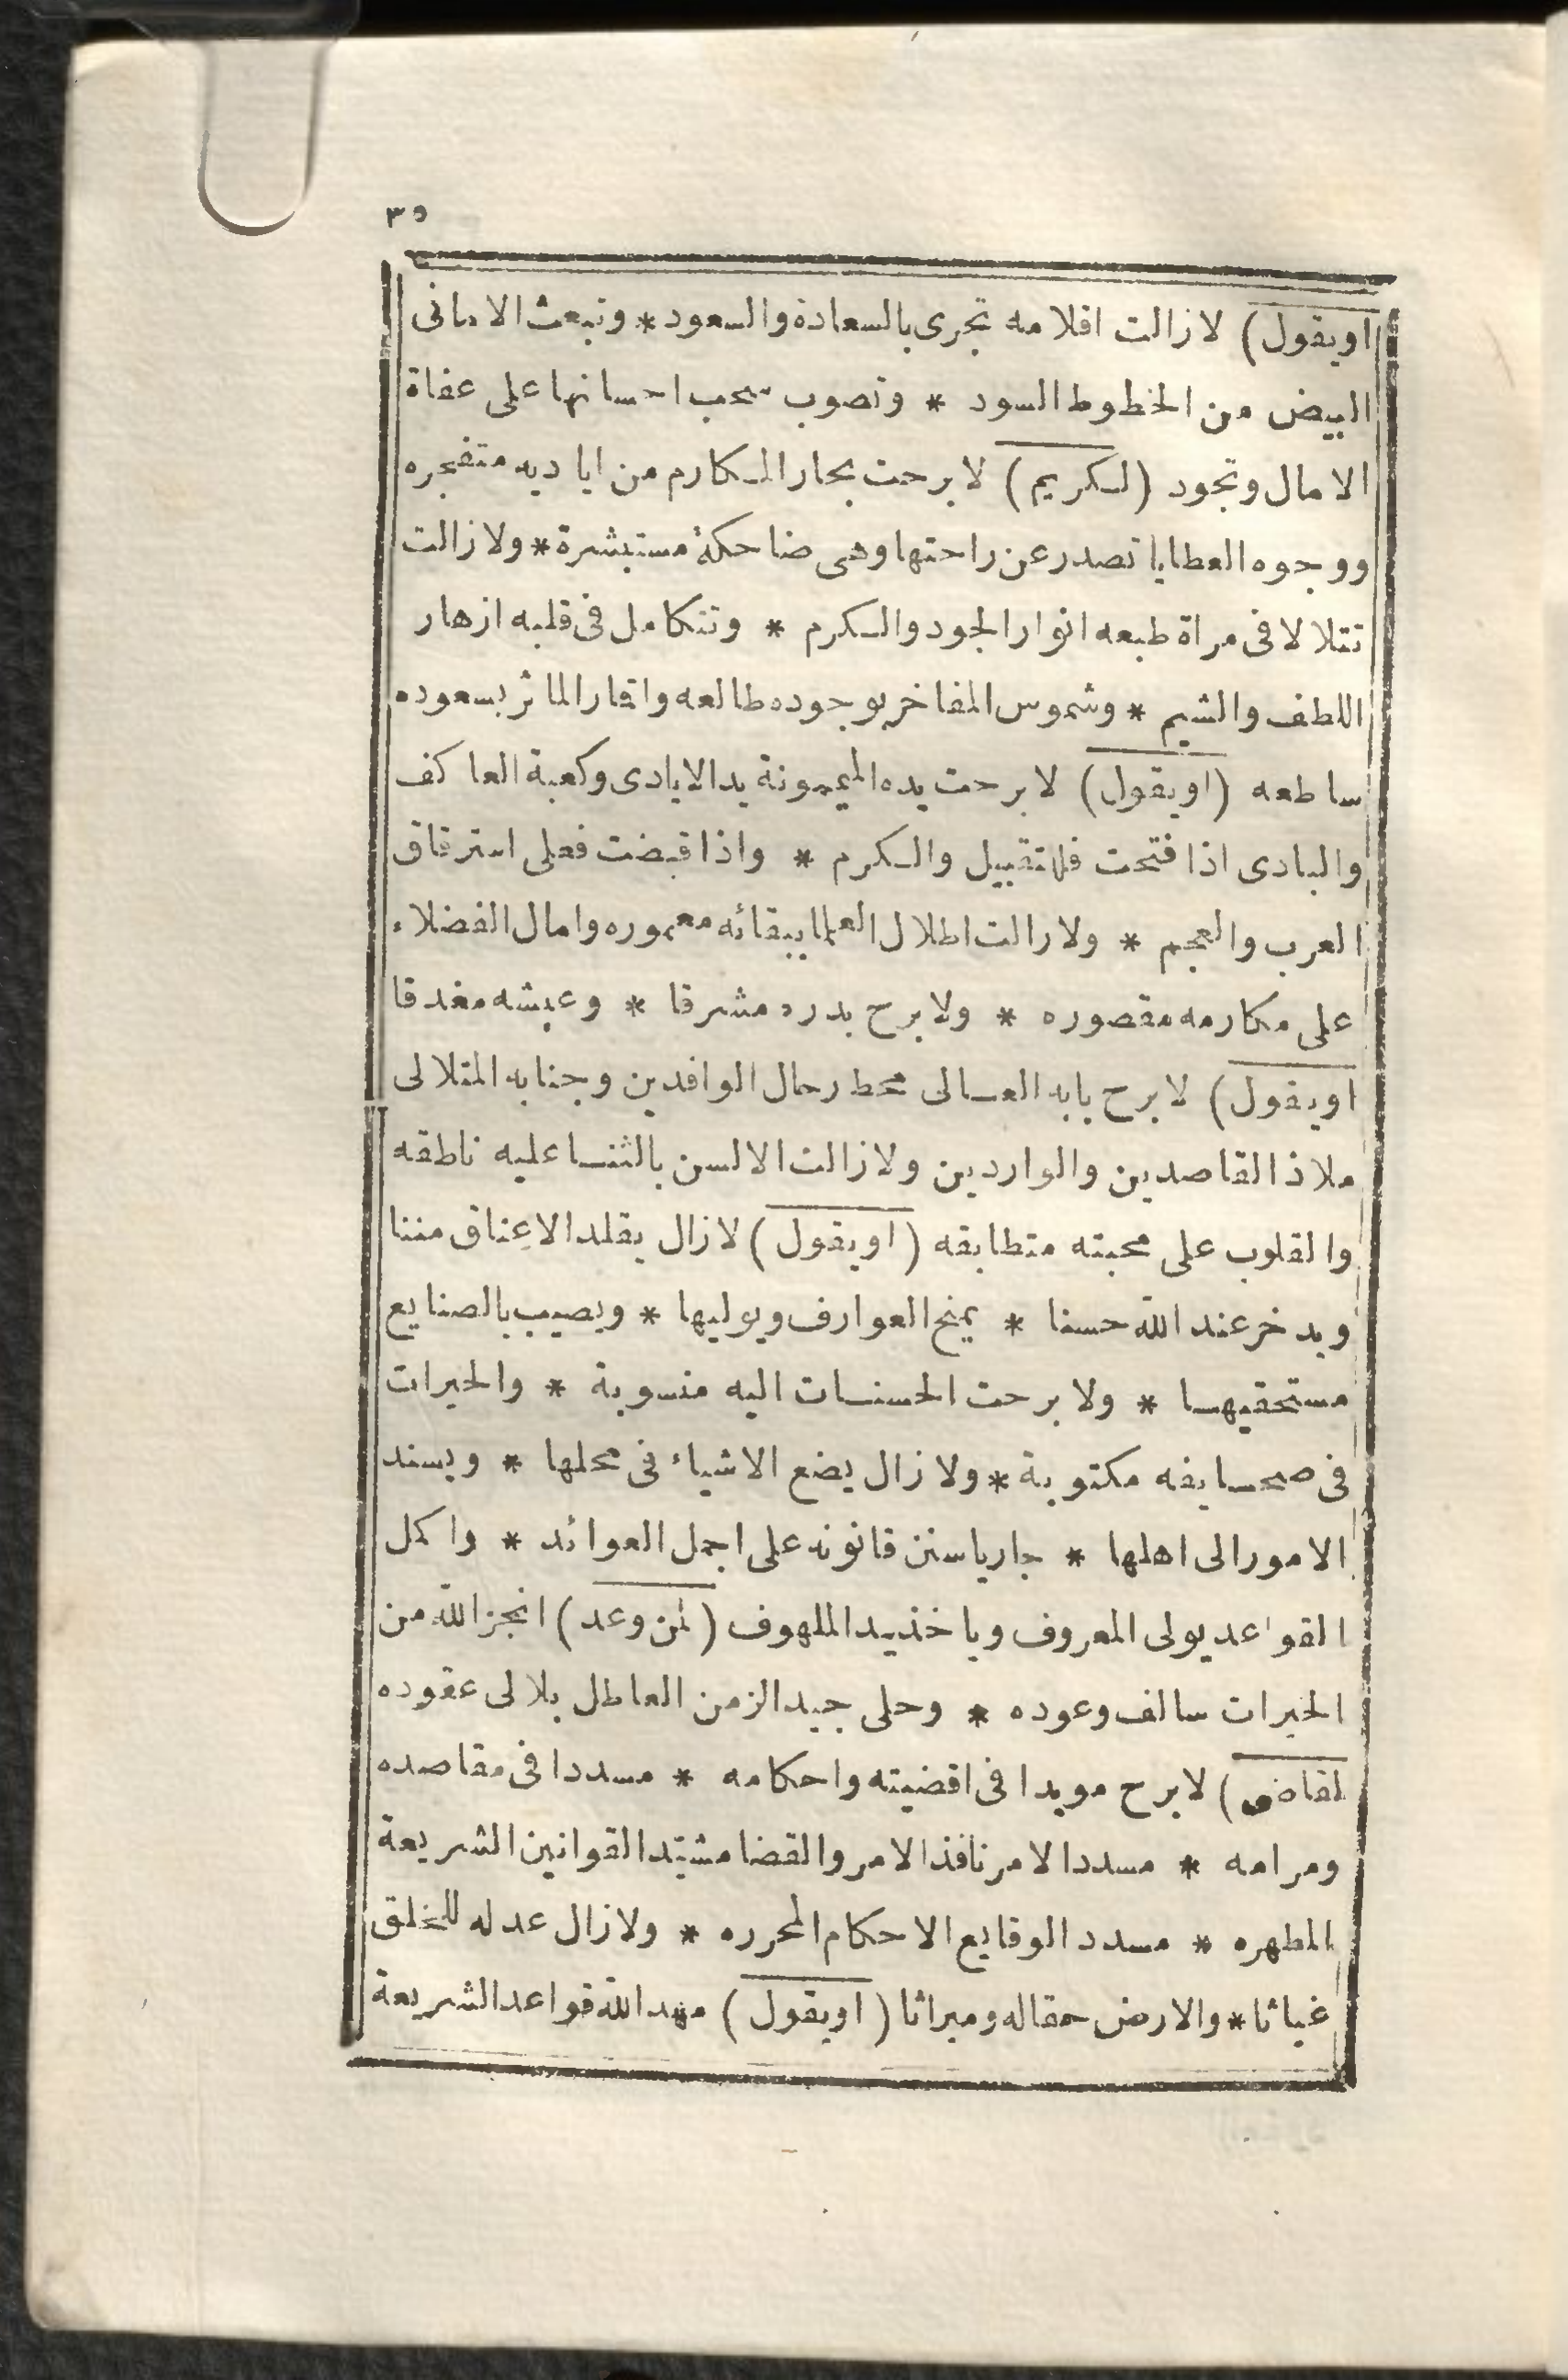 ٣٥
اويقول) لازالت اقلامه تجرى بالسعادة والسعود * وتبعث الامانى
البيض من الخطوط السود * وتصوب سحب احسانها على عفاة
الامال وتجود (لكريم) لا برحت بحار المكارم من اياديه متفجره
ووجوه العطايا تصدر عن راحتها وهى ضاحكة مستبشرة * ولا زالت
تتلالا فى مراة طبعه انوار الجود والكرم * وتتكامل فى قلبه ازهار
اللطف والشيم * وشموس المفاخر بوجوده طالعه واقمار الماثر بسعوده
ساطعه (اويقول) لا برحت يده الميمونة يد الايادى وكعبة العاكف
والبادى اذا فتحت فللتقبيل والكرم * واذا قبضت فعلى استرقاق
العرب والعجم * ولا زالت اطلال العلما ببقائه معموره وامال الفضلاء
على مكارمه مقصوره * ولا برح بدره مشرقا * وعيشه مغدقا
اويقول) لا برح بابه العالى محط رحال الوافدين وجنابه المتلالى
ملاذ القاصدين والواردين ولا زالت الالسن بالثنا عليه ناطقه
والقلوب على محبته متطابقه (اويقول) لازال يقلد الاعناق مننا
ويدخر عند الله حسنا * يمنح العوارف ويوليها * ويصيب بالصنايع
مستحقيها * ولا برحت الحسنات اليه منسوبة * والخيرات
فى صحايفه مكتوبة * ولا زال يضع الاشياء فى محلها * ويسند
الامور الى اهلها * جاريا سنن قانونه على اجمل العوائد * واكمل
القواعد يولى المعروف وياخذ يد الملهوف (لمن وعد) انجز الله من
الخيرات سالف وعوده * وحلى جيد الزمن العاطل بلالى عقوده
لقاضى) لا برح مويدا فى اقضيته واحكامه * مسددا فى مقاصده
ومرامه * مسدد الامر نافذ الامر والقضا مشيّد القوانين الشريعة
المطهره * مسدد الوقايع الاحكام المحرره * ولا زال عدله للخلق
غياثا * والارض حقاله وميراثا (اويقول) مهد الله قواعد الشريعة